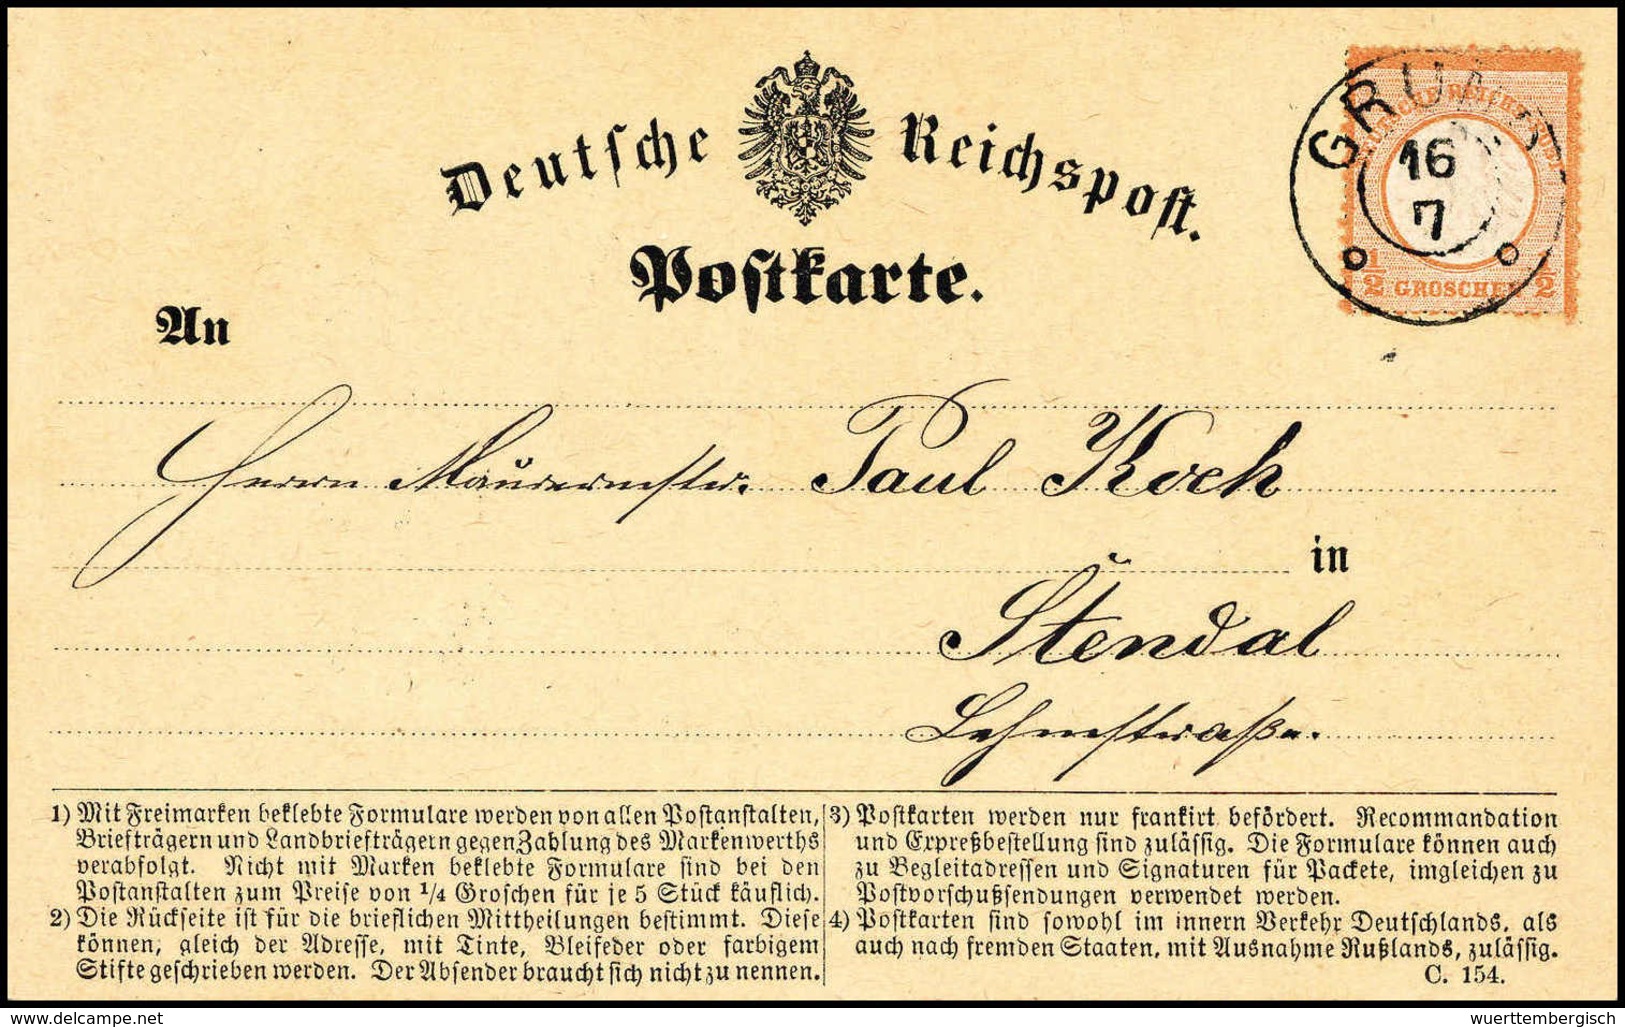 Deutsche Reichspost.
Postkarte.
DEUTSCHE REICHS-POST
16
7
1/2 GROSCHEN 1/2
An
Herrn Maurermstr. Paul Koch
in
Stendal
1) Mit Freimarken beklebte Formulare werden von allen Postanstalten,
Briefträgern und Landbriefträgern gegen Zahlung des Markenwerths
verabfolgt. Nicht mit Marken beklebte Formulare sind bei den
Postanstalten zum Preise von 1/4 Groschen für je 5 Stück käuflich.
2) Die Rückseite ist für die brieflichen Mittheilungen bestimmt. Diese
können, gleich der Adresse, mit Tinte, Bleifeder oder farbigem
Stifte geschrieben werden. Der Absender braucht sich nicht zu nennen.
3) Postkarten werden nur frankirt befördert. Recommandation
und Expreßbestellung sind zulässig. Die Formulare können auch
zu Begleitadressen und Signaturen für Packete, imgleichen zu
Postvorschußsendungen verwendet werden.
4) Postkarten sind sowohl im innern Verkehr Deutschlands, als
auch nach fremden Staaten, mit Ausnahme Rußlands, zulässig.
C. 154.
© www.delcampe.net
wuerttembergisch